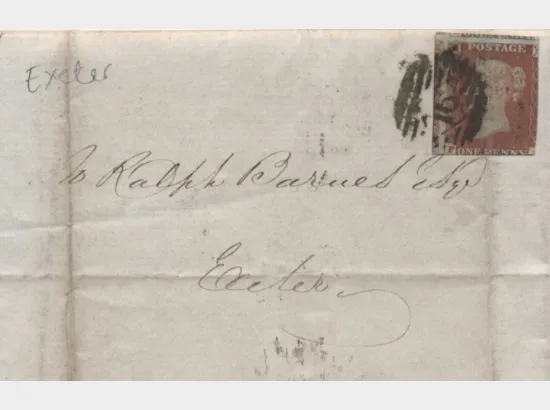 Exeter
POSTAGE
ONE PENNY
Ralph Barnes Esqr
Exeter